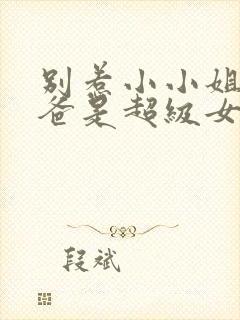 别惹小小姐
爸是超级女
段斌